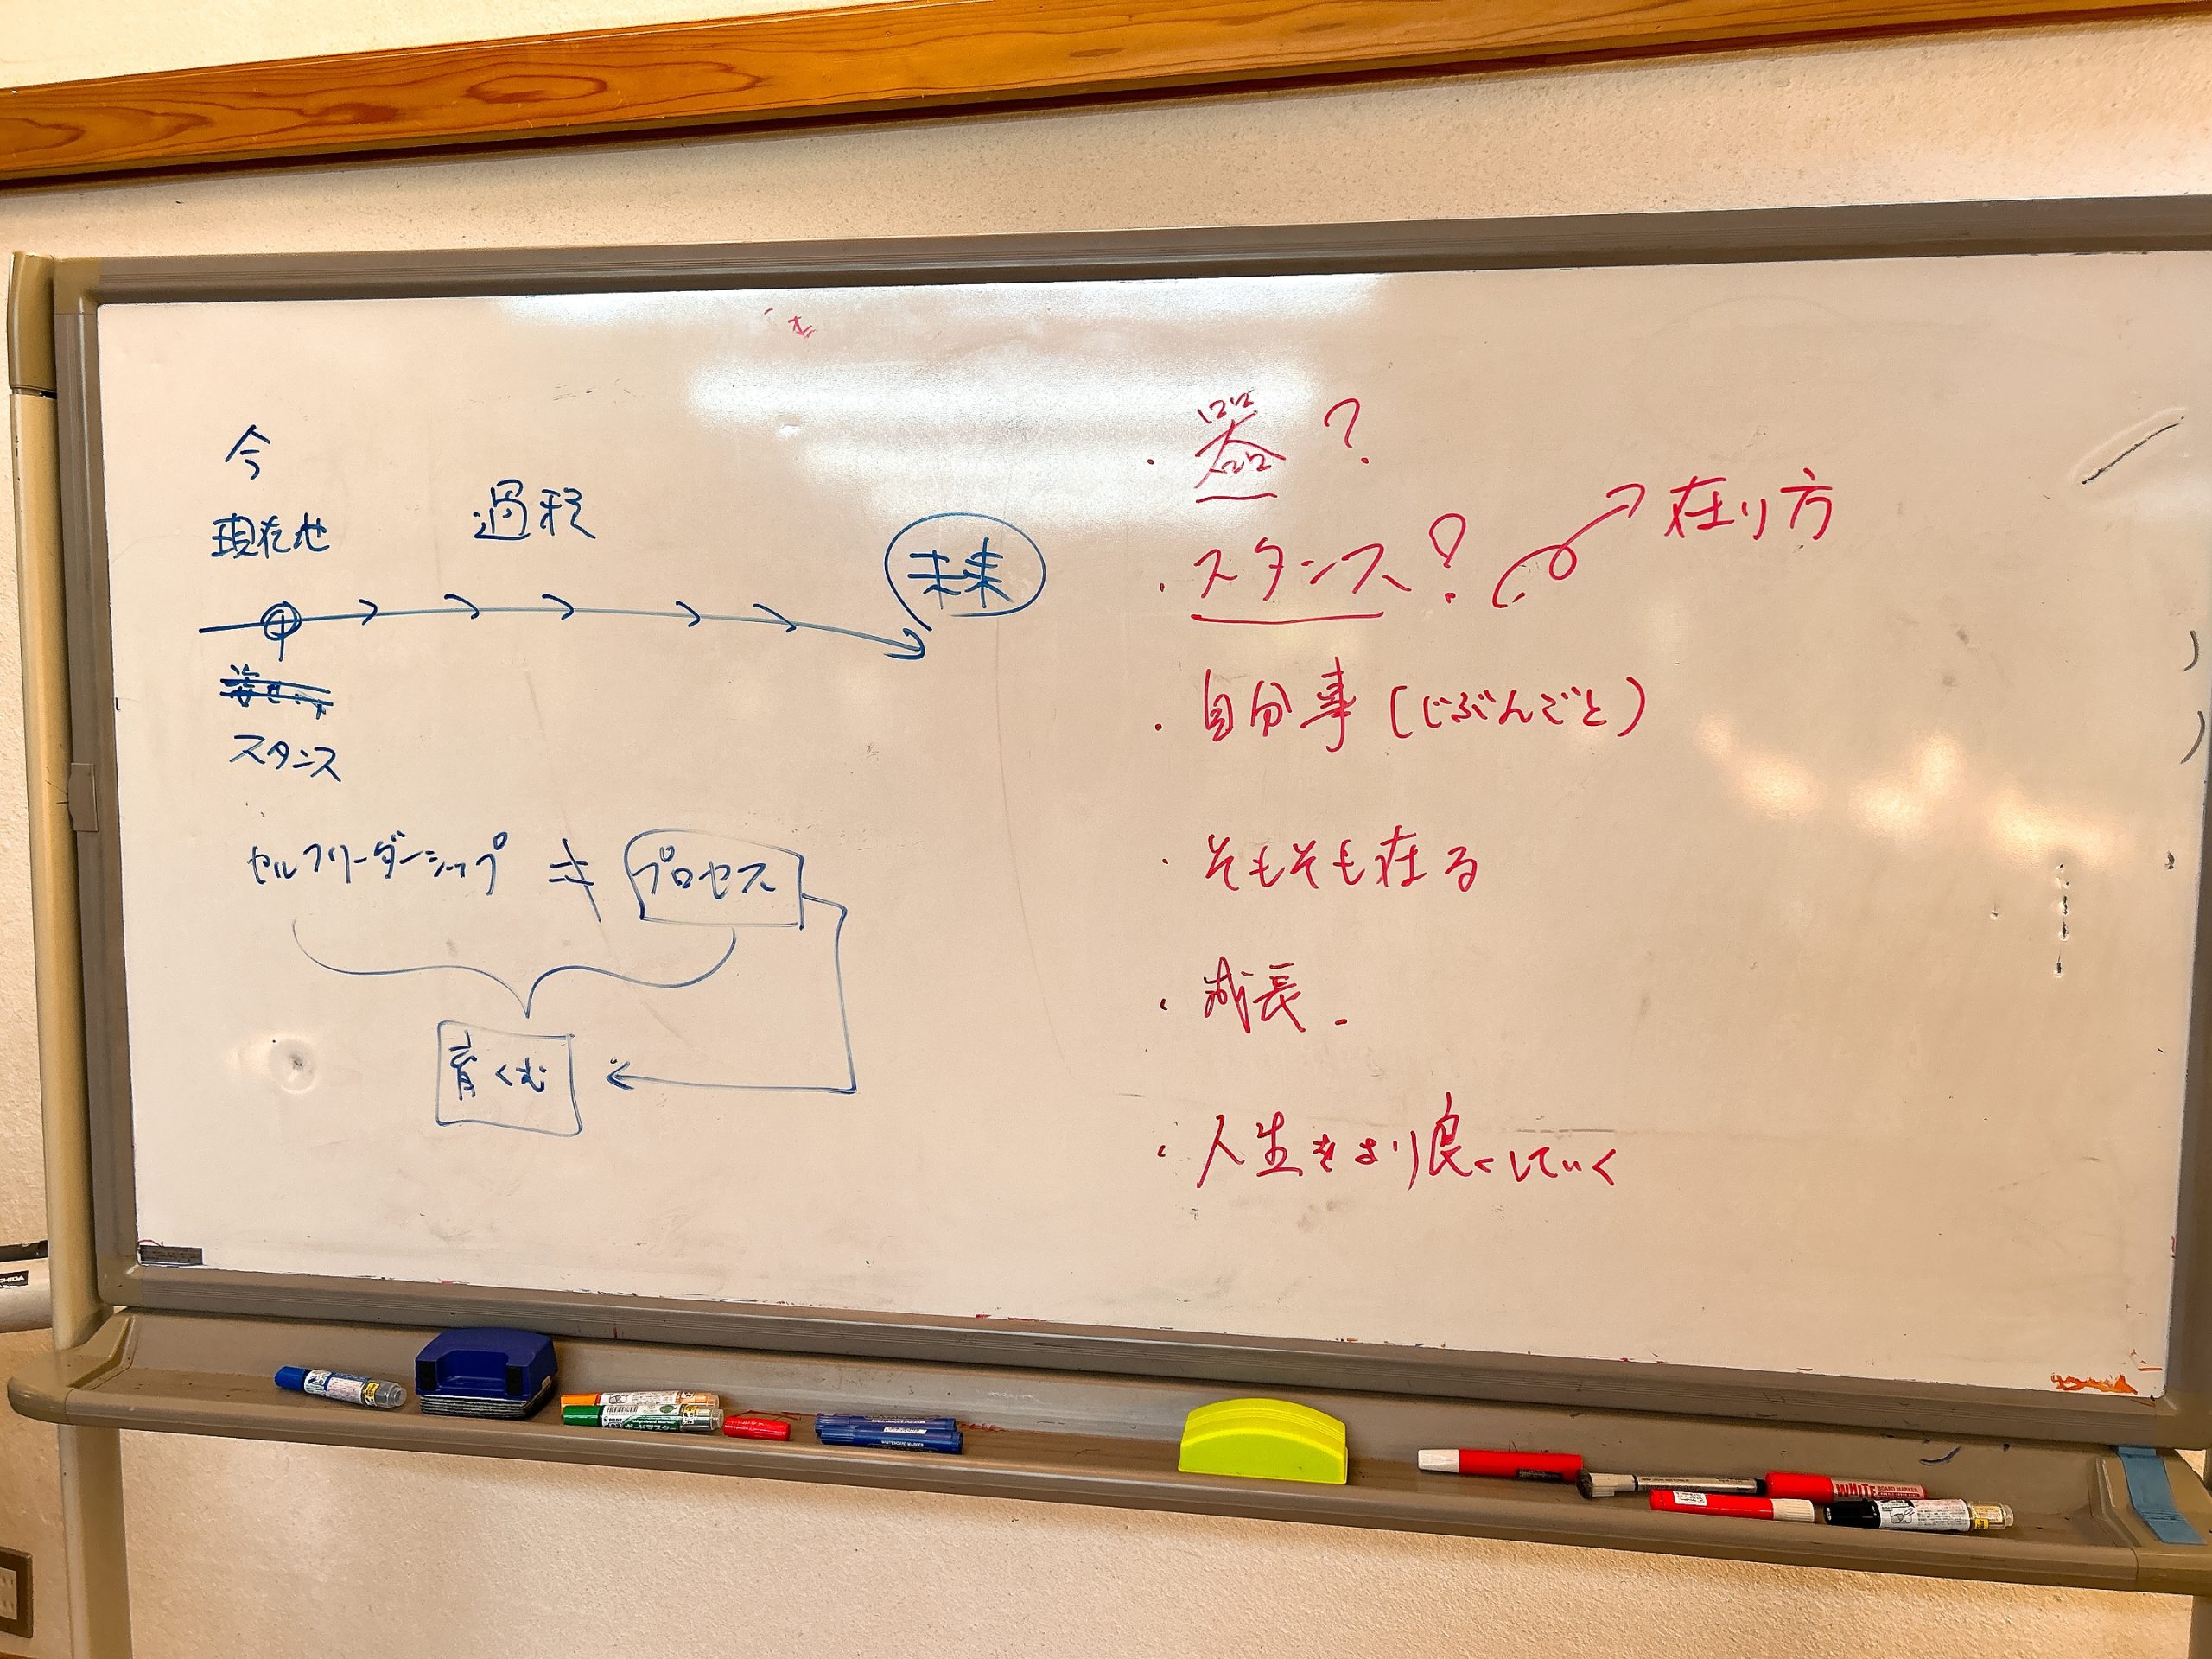 今
現在地
過程
未来
スタンス
セルフリーダーシップ ≠ プロセス
育くむ
・器?
・スタンス?
在り方
・自分事(じぶんごと)
・そもそも在る
・成長.
・人生をより良くしていく
WHITEBOARD MARKER
WHITE BOARD MARKER